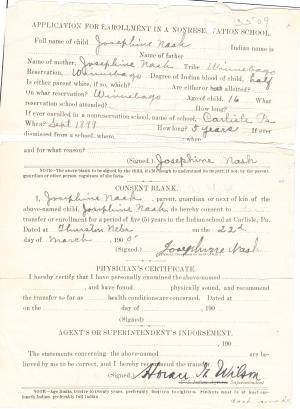 3509
APPLICATION FOR ENROLLMENT IN A NONRESERVATION SCHOOL.
Full name of child, Josephine Nash Indian name is
Name of father
Name of mother, Josephine Nash Tribe Winnebago
Reservation, Winnebago Degree of Indian blood of child, half
Is either parent white, if so, which? Are either or both allotted?
On what reservation? Winnebago Age of child, 16 What
reservation school attended? How long?
If ever enrolled in a nonreservation school, name of school, Carlisle Pa
When? Sept 1899 How long? 5 years If ever
dismissed from a school, where,
and for what reason?
(Signed) Josephine Nash
NOTE.—The above blank to be signed by the child, if old enough to understand its import; if not, by the parent,
guardian or other person cognizant of the facts.
CONSENT BLANK.
I, Josephine Nash, parent, guardian or next of kin of
the above-named child, Josephine Nash do hereby consent to
transfer or enrollment for a period of five (5) years in the Indian school at Carlisle, Pa.
Dated at Thurston Nebr on the 22d
day of March, 190
(Signed) Josephine Nash
PHYSICIAN'S CERTIFICATE.
I hereby certify that I have personally examined the above-named
, and have found physically sound, and recommend
the transfer so far as health conditions are concerned. Dated at
on the day of , 190
(Signed)
AGENT'S OR SUPERINTENDENT'S INDORSEMENT.
, 190
The statements concerning the above-named are be-
lieved by me to be correct, and I hereby recommend the transfer.
(Signed) Horace G. Wilson
Superintendent
NOTE.—Age limits, twelve to twenty years, preferably fourteen to eighteen. Indian blood must be at least one-
fourth Indian, preferably full Indian